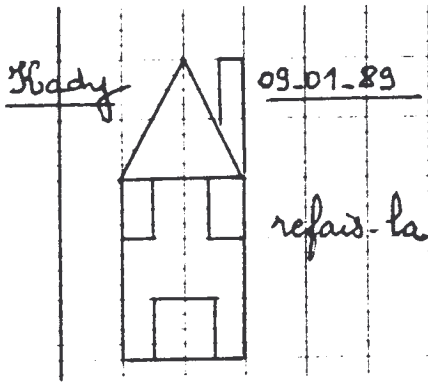 Kady 09-01-89
refais-la